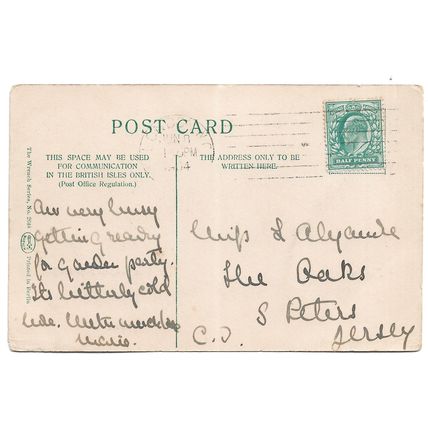 POST CARD
THIS SPACE MAY BE USED
FOR COMMUNICATION
IN THE BRITISH ISLES ONLY.
(Post Office Regulation.)
THE ADDRESS ONLY TO BE
WRITTEN HERE.
HALF PENNY
The Wrench Series, No.
Printed in
JUN
PM
Am very busy
getting ready
for garden party.
Its bitterly cold
here. With much love
Miss L Alexandre
The Oaks
S Peters
C.I. Jersey